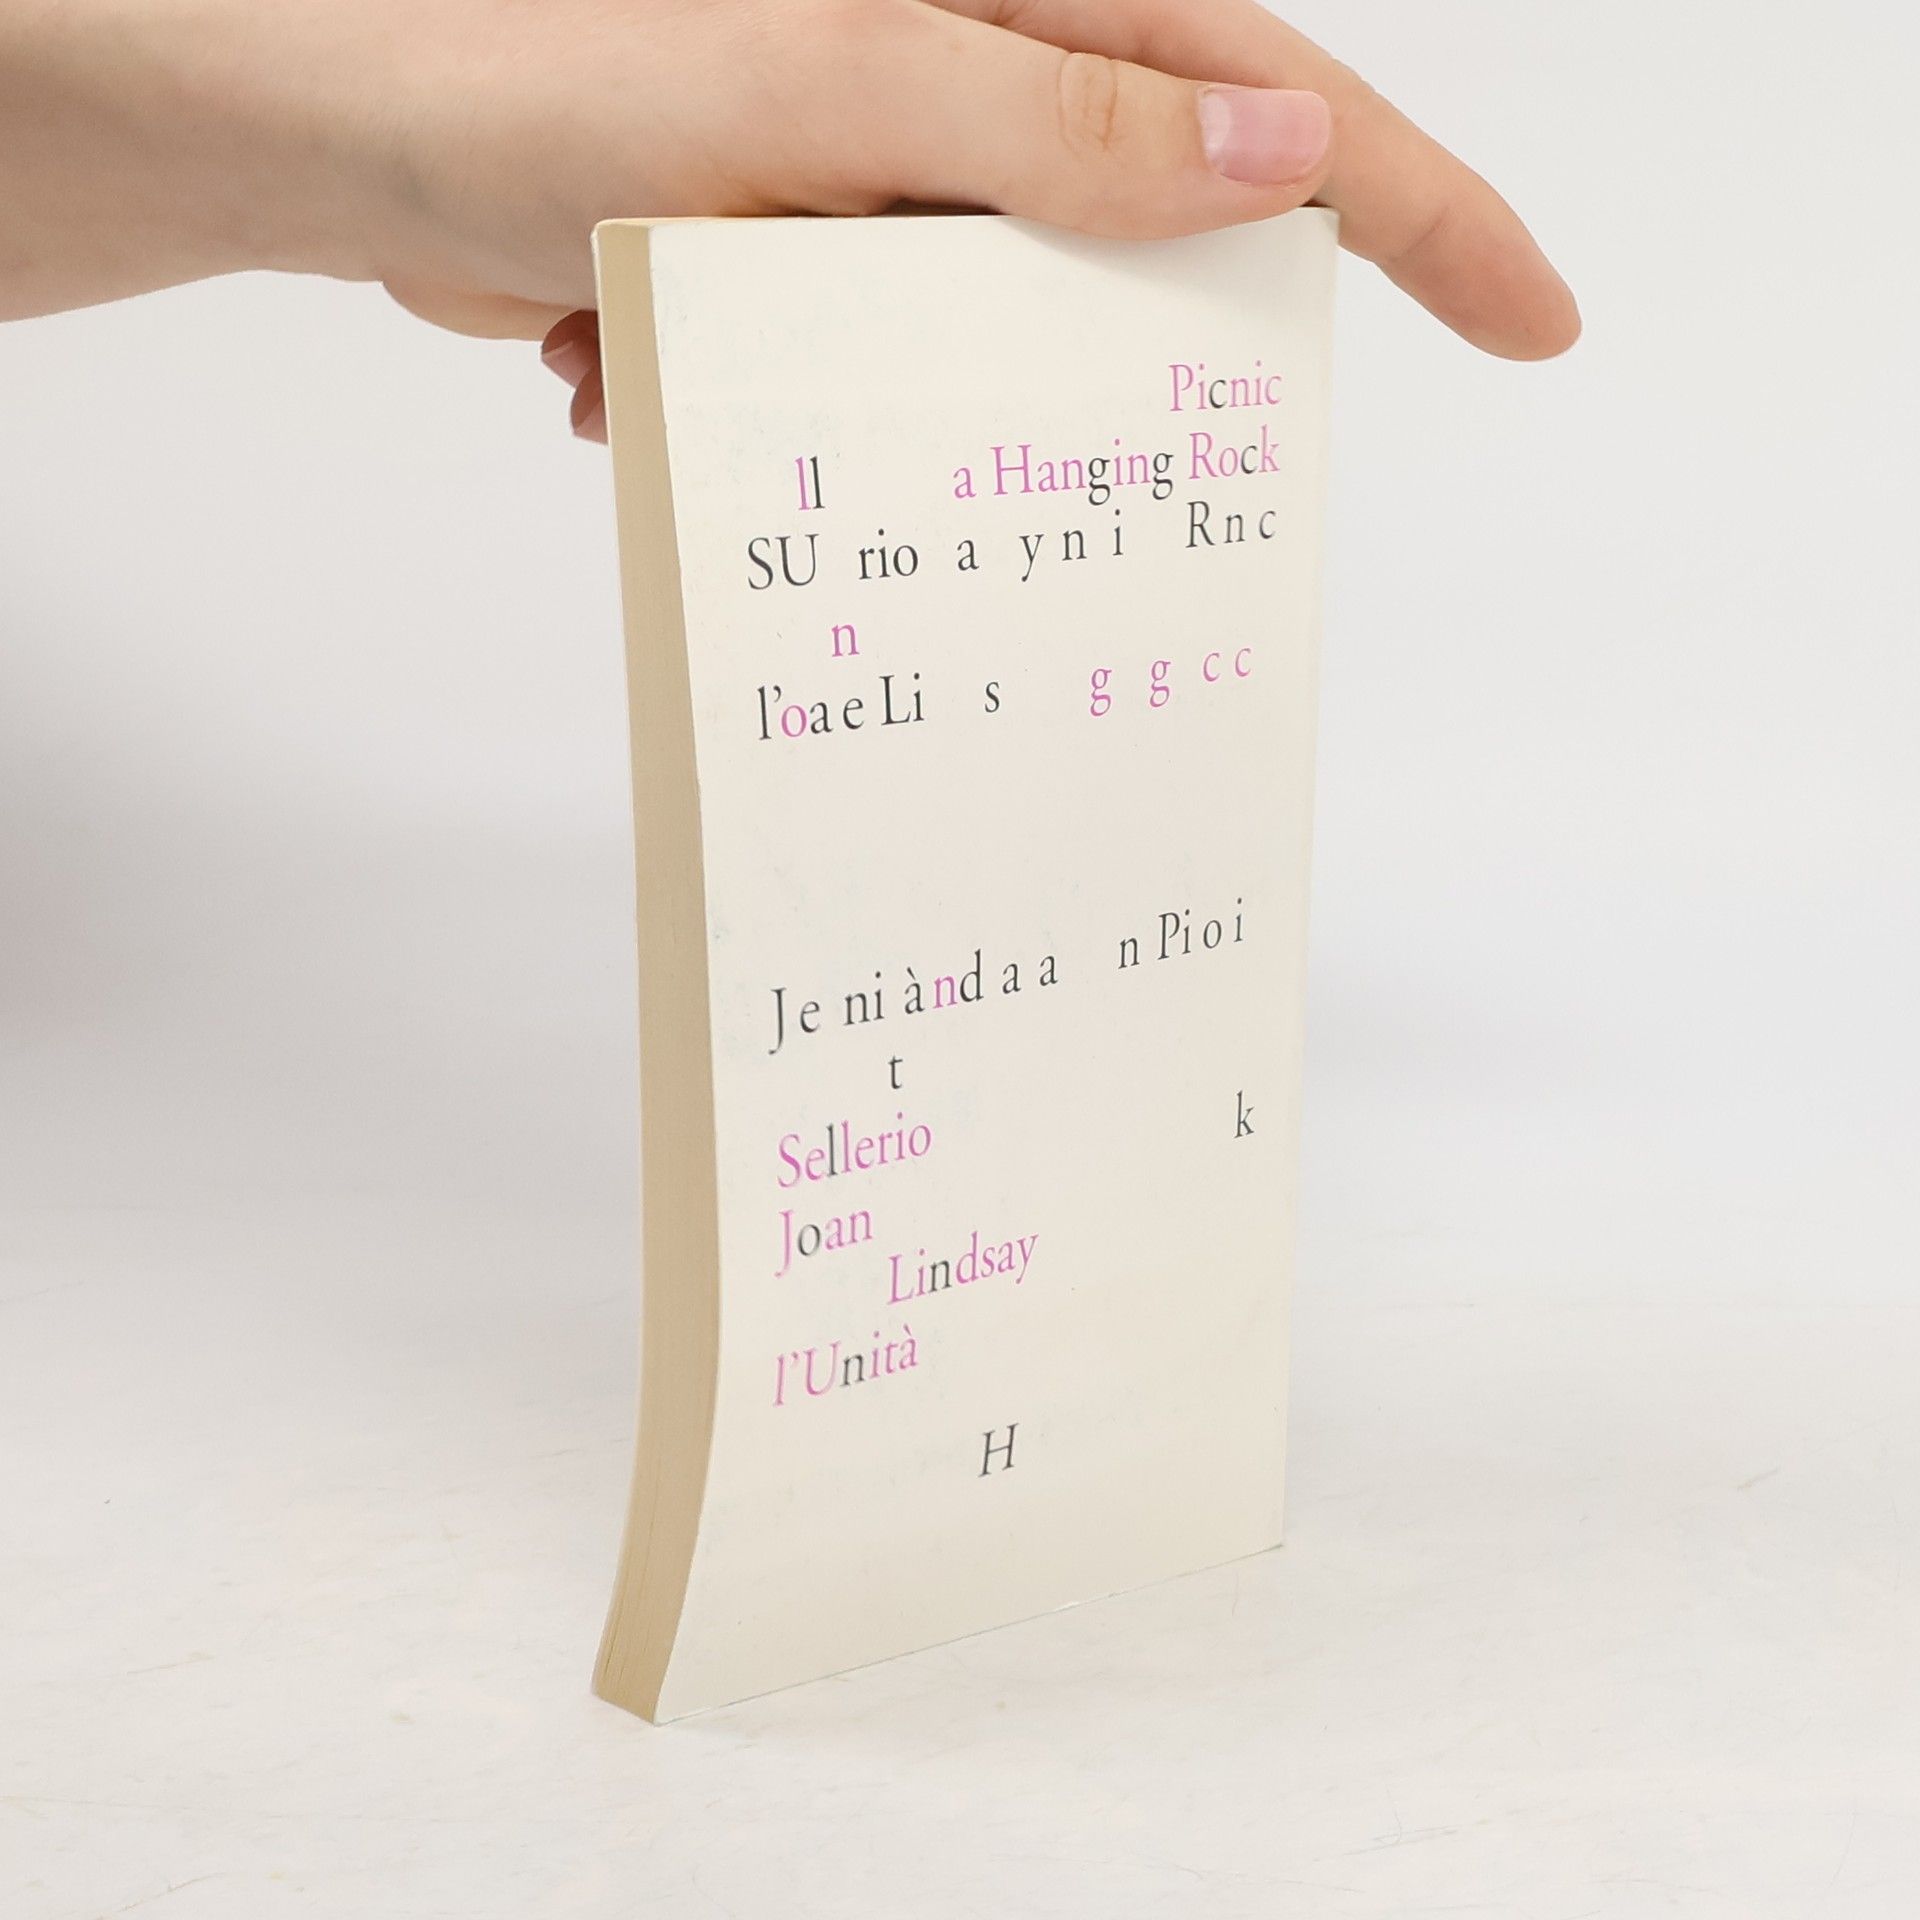 Picnic
ll a Hanging Rock
SU rio a y n i R n c
n
l'oa e Li s g g c c
J e ni ànd a a n Pi o i
t
Sellerio k
Joan
Lindsay
l'Unità
H